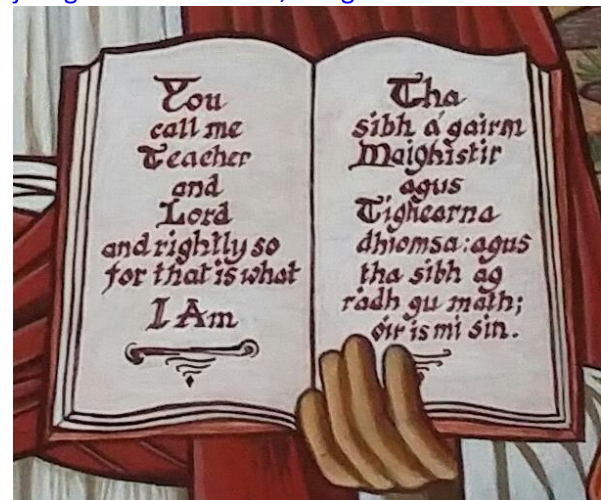 You
call me
Teacher
and
Lord
and rightly so
for that is what
I Am
Tha
sibh a' gairm
Maighistir
agus
Tighearna
dhiomsa: agus
tha sibh ag
ràdh gu math;
óir is mi sin.